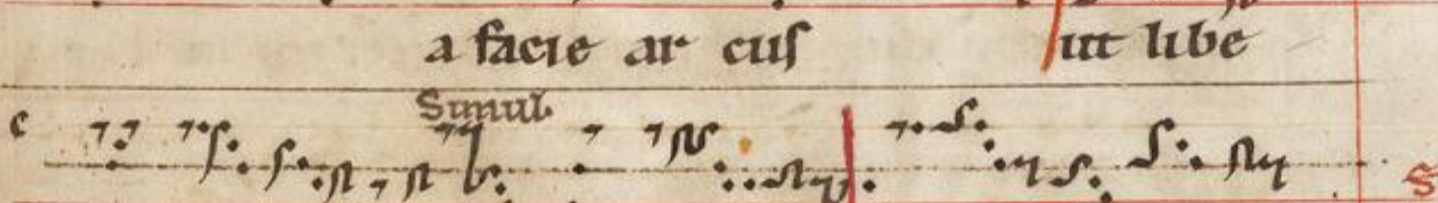 a facie ar cus ut libe
Simul
c
S